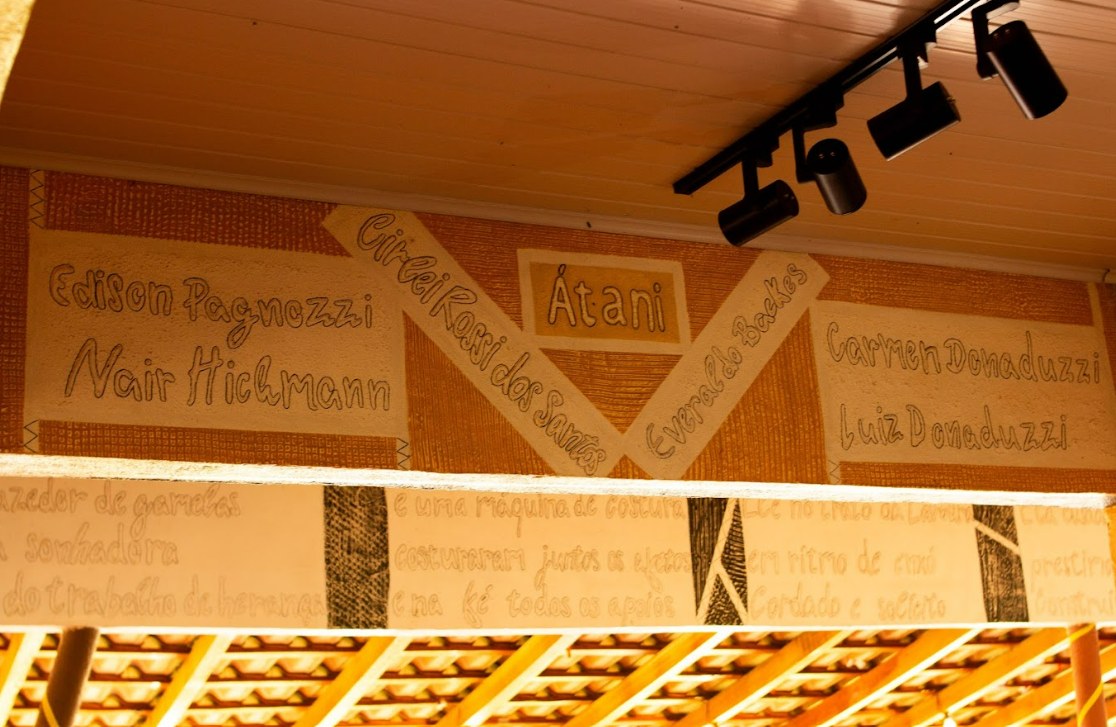 Edison Pagnozzi
Nair Hichmann
Cirlei Rossi dos Santos
Átani
Everaldo Backes
Carmen Donaduzzi
Luiz Donaduzzi
de gamelas
sonhadora
do trabalho de herança
e uma máquina de costura
costurarem juntos os afetos
e na fé todos os apoios
no trato da
em ritmo de
Cordado e solícito